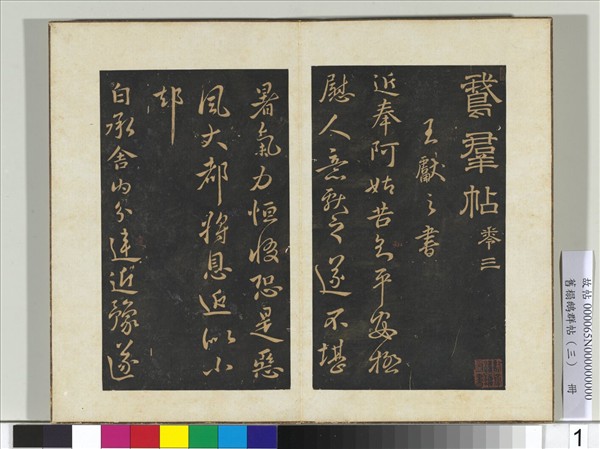 鵞羣帖 卷三
王獻之書
近奉阿姑告知平安極
慰人意獻之遂不堪
暑氣力恒惙恐是惡
風大都將息近似小
却
自承舍內分違近豫遂
故帖 000065N000000000
舊搨鵝群帖（三） 冊
1